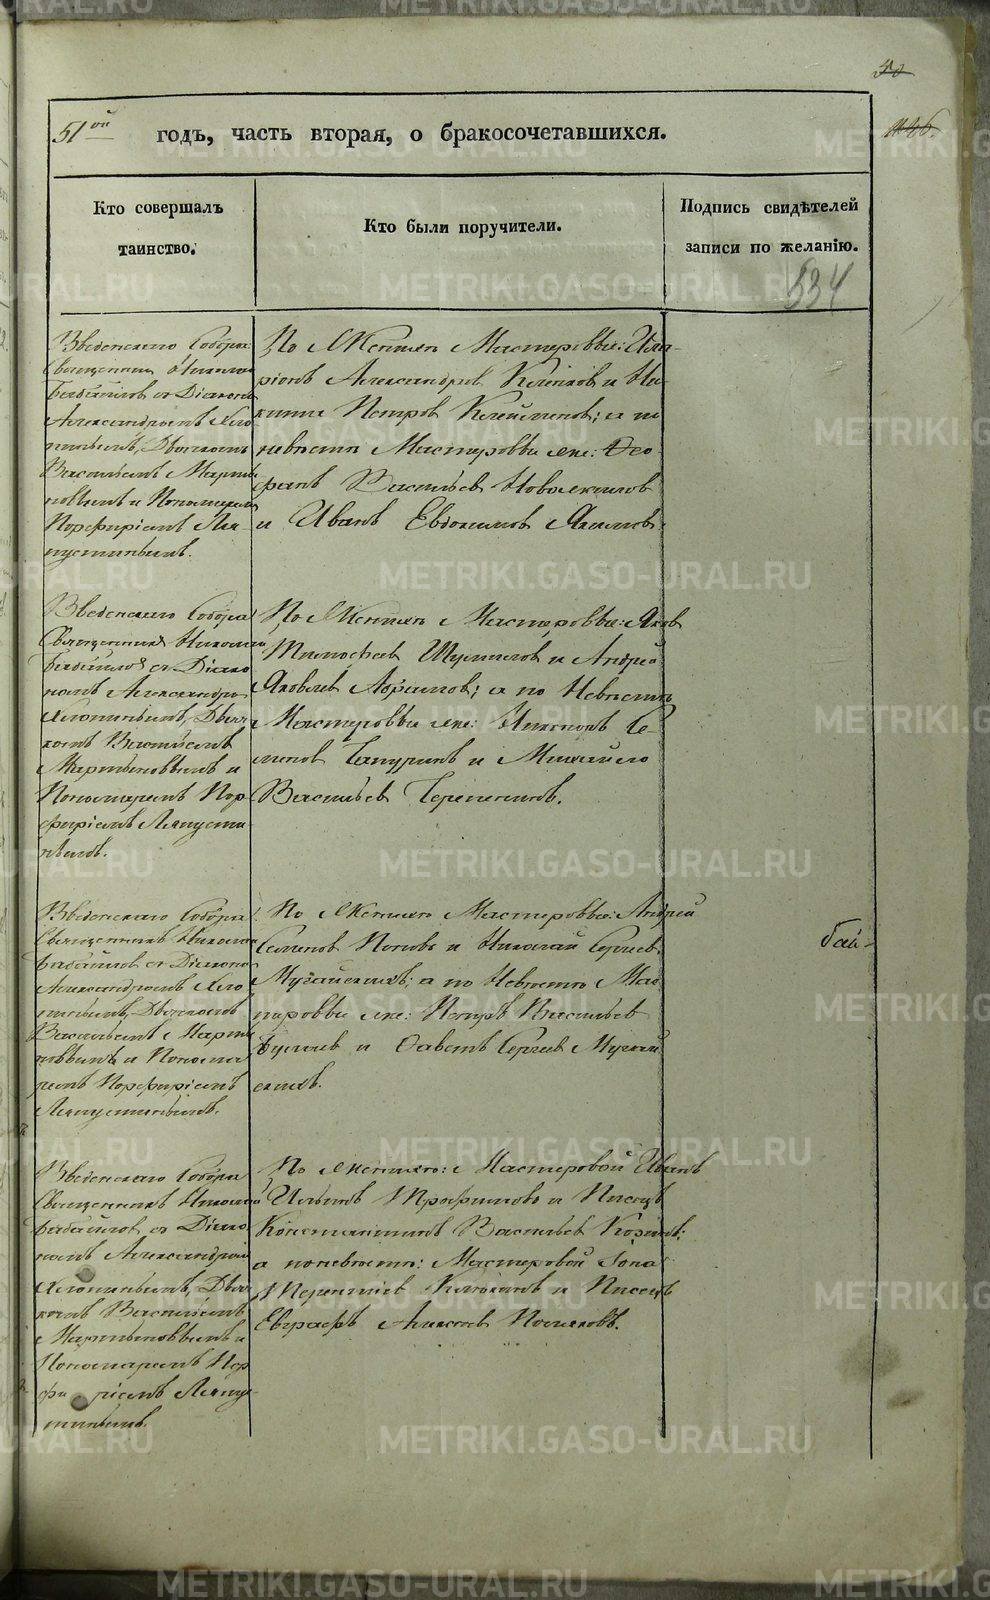 51ой годъ, часть вторая, о бракосочетавшихся.
Кто совершалъ
таинство.
Кто были поручители.
Подпись свидѣтелей
записи по желанію.
534
Введенскаго Собора
Священникъ Николай
съ Діакономъ
Александромъ Хло
пинымъ, Дьячкомъ
Васильемъ Марть
новымъ и Пономаремъ
Порфиріемъ Ляп
устинымъ.
По Женихѣ Мастеровые: Ила-
ріонъ Александровъ и Ни-
Петровъ Клейменовъ; а по
невѣстѣ Мастеровые же: Ѳео-
фанъ Васильевъ
и Иванъ Евдокимовъ
Введенскаго Собора
Священникъ Николай
съ Діако
номъ Александро
Хлопинымъ, Дьяч
комъ Васильемъ
Мартыновымъ и
Пономаремъ Пор
фиріемъ Ляпусти
нымъ.
По Женихѣ Мастеровые: Яковъ
Тимофеевъ и Андрей
Яковлевъ; а по Невѣстѣ
Мастеровые же: Никаноръ Се-
меновъ и Михайло
Васильевъ Черепениновъ.
Введенскаго Собора
Священникъ Николай
съ Діакономъ
Александромъ Хло
пинымъ, Дьячкомъ
Васильемъ Марты
новымъ и Понома
ремъ Порфиріемъ
Ляпустинымъ.
По Женихѣ Мастеровые: Андрей
Семеновъ Поповъ и Николай Сергѣевъ
а по Невѣстѣ Мас
теровые же: Петръ Васильевъ
и Савватѣй Сергѣевъ
Введенскаго Собора
Священникъ Николай
съ Діако
номъ Александромъ
Хлопинымъ, Дьяч
комъ Васильемъ
Мартыновымъ и
Пономаремъ Пор
фиріемъ Ляпу
стинымъ.
По Женихѣ: Мастеровой Иванъ
Ильинъ Трофимовъ и Писецъ
Константинъ Васильевъ
а по невѣстѣ: Мастеровой Іона
Терентьевъ и Писецъ
Евграфъ Алексѣевъ Поляковъ.
METRIKI.GASO-URAL.RU